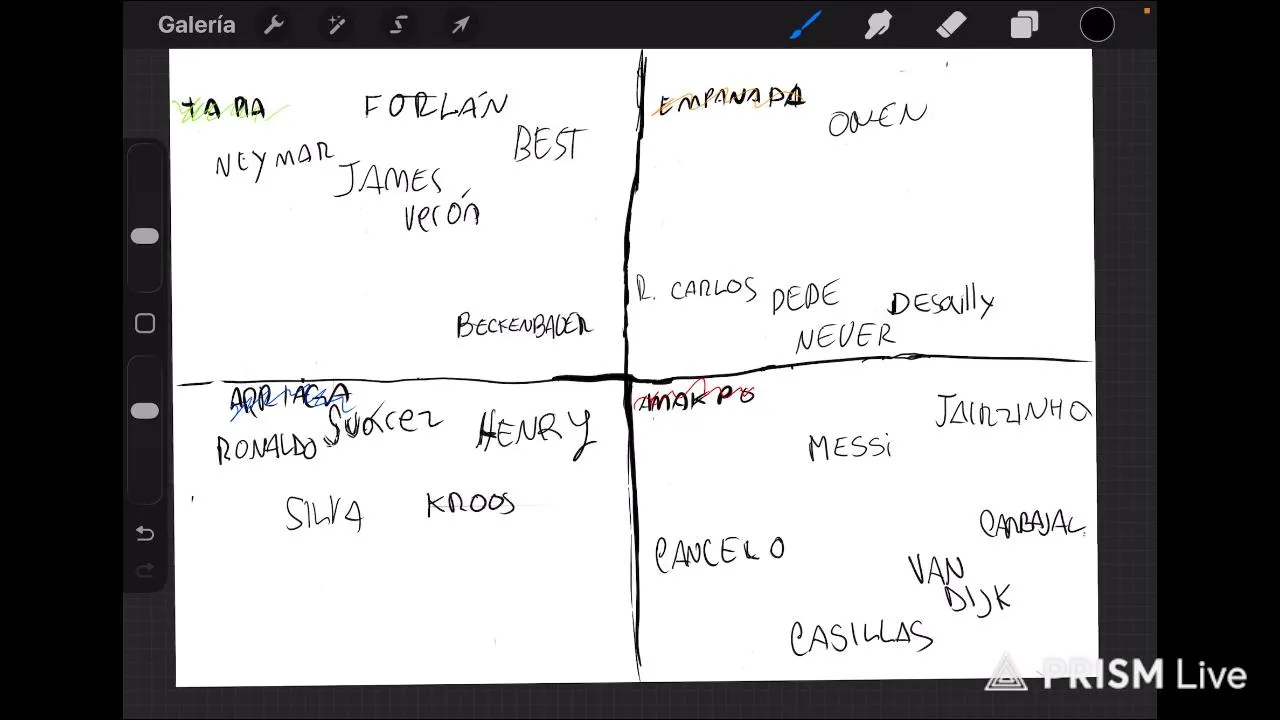 Galería
TAPIA
FORLÁN
BEST
NEYMAR
JAMES
Verón
BECKENBAUER
EMPANADA
OWEN
R. CARLOS
PEPE
DESAILLY
NEUER
ARRIAGA
RONALDO
SUÁREZ
HENRY
SILVA
KROOS
AMAKPO
JAIRZINHO
MESSI
CARBAJAL
CANCELO
VAN
DIJK
CASILLAS
PRISM Live